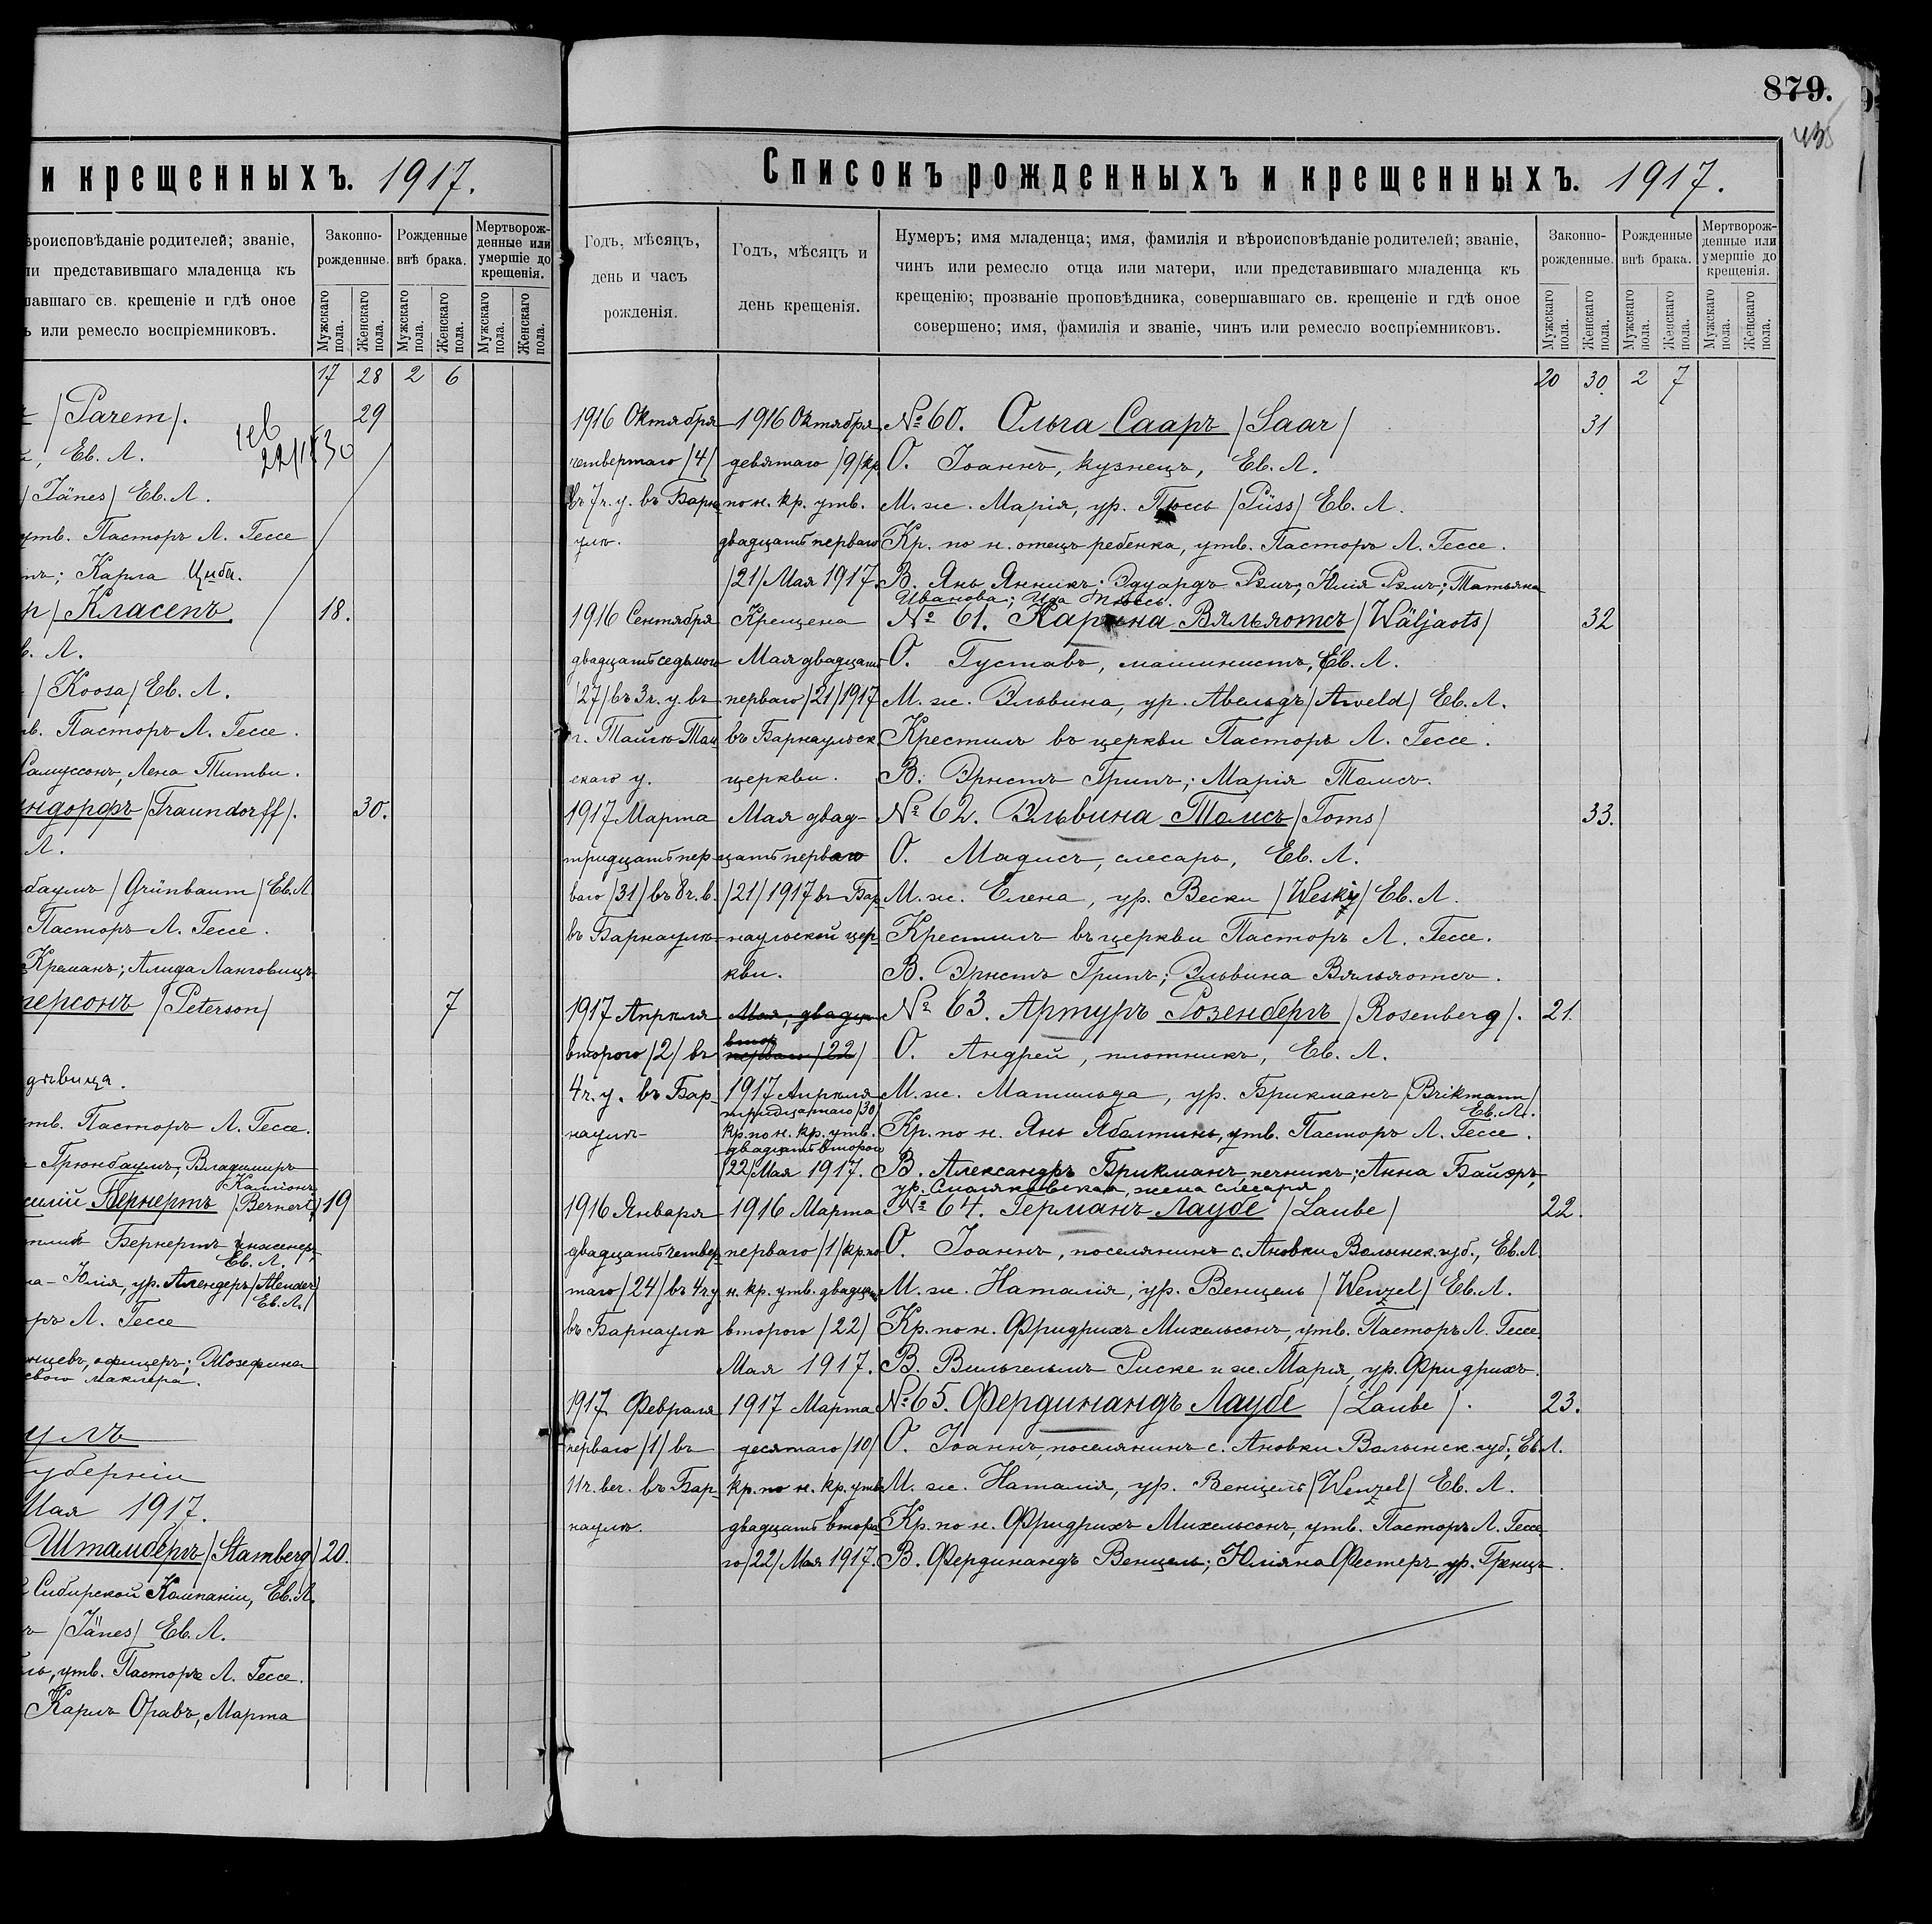 и крещенныхъ. 1917.
ѣроисповѣданіе родителей; званіе,
ли представившаго младенца къ
шавшаго св. крещеніе и гдѣ оное
ъ или ремесло воспріемниковъ.
Законно-
рожденные.
Рожденные
внѣ брака.
Мертворож-
денные или
умершіе до
крещенія.
Мужскаго пола.
Женскаго пола.
Мужскаго пола.
Женскаго пола.
Мужскаго пола.
Женскаго пола.
17 28 2 6
/Parem/. 29
Ев. Л. 30
/Jänes/ Ев. Л.
утв. Пасторъ Л. Гессе
Карла Циба.
Класепъ 18.
Л.
/Koosa/ Ев. Л.
Пасторъ Л. Гессе.
Самуссонъ, Лена Титви.
ндорфъ /Traundorff/. 30.
Л.
баумъ /Grünbaum/ Ев. Л
Пасторъ Л. Гессе.
Креманъ; Алида Ланговицъ
терсонъ /Peterson/ 7
дѣвица.
утв. Пасторъ Л. Гессе.
Грюнбаумъ, Владимиръ
Бернертъ /Bernert/ 19
Бернертъ инженеръ,
Ев. Л.
Юлія, ур. Алендеръ /Alender/
Ев. Л.
Л. Гессе
офицеръ; Жозефина
маклера.
улъ
губерніи
Мая 1917.
Штамбергъ /Stamberg/ 20.
Сибирской Компаніи, Ев. Л.
/Jänes/ Ев. Л.
утв. Пасторъ Л. Гессе.
Карлъ Оравъ, Марта
879.
Списокъ рожденныхъ и крещенныхъ. 1917.
Годъ, мѣсяцъ,
день и часъ
рожденія.
Годъ, мѣсяцъ и
день крещенія.
Нумеръ; имя младенца; имя, фамилія и вѣроисповѣданіе родителей; званіе,
чинъ или ремесло отца или матери, или представившаго младенца къ
крещенію; прозваніе проповѣдника, совершавшаго св. крещеніе и гдѣ оное
совершено; имя, фамилія и званіе, чинъ или ремесло воспріемниковъ.
Законно-
рожденные.
Рожденные
внѣ брака.
Мертворож-
денные или
умершіе до
крещенія.
Мужскаго пола.
Женскаго пола.
Мужскаго пола.
Женскаго пола.
Мужскаго пола.
Женскаго пола.
20 30. 2 7
1916 Октября 1916 Октября №60. Ольга Сааръ /Saar/ 31
четвертаго /4/ девятаго /9/ кр О. Іоаннъ, кузнецъ, Ев. Л.
въ 7ч. у. въ Барна по н. кр. утв. М. ж. Марія, ур. Пюссь /Püss/ Ев. Л.
улѣ. двадцать перваго Кр. по н. отецъ ребенка, утв. Пасторъ Л. Гессе.
/21/ Мая 1917. В. Янъ Янникъ; Эдуардъ Рямъ; Юлія Рямъ; Татьяна
Иванова; Ида Пюссь.
1916 Сентября Крещена № 61. Карина Вяльяотсъ /Wäljaots/ 32
двадцать седьмого Мая двадцать О. Густавъ, машинистъ, Ев. Л.
/27/ въ 3ч. у. въ перваго /21/ 1917 М. ж. Эльвина, ур. Авельдъ /Aweld/ Ев. Л.
г. Тайгѣ Том въ Барнаульск. Крестилъ въ церкви Пасторъ Л. Гессе.
скаго у. церкви. В. Эрнстъ Грипъ; Марія Томсъ.
1917 Марта Мая двад- № 62. Эльвина Томсъ /Toms/ 33.
тридцать пер- цать перваго О. Мадисъ, слесарь, Ев. Л.
ваго /31/ въ 8ч. в. /21/ 1917 въ Бар- М. ж. Елена, ур. Вески /Wesky/ Ев. Л.
въ Барнаулѣ наульской цер- Крестилъ въ церкви Пасторъ Л. Гессе.
кви. В. Эрнстъ Грипъ; Эльвина Вяльяотсъ.
1917 Апрѣля Мая, двадца № 63. Артуръ Розенбергъ /Rosenberg/. 21.
втор
второго /2/ въ перваго /22/ О. Андрей, плотникъ, Ев. Л.
4ч. у. въ Бар- 1917 Апрѣля М. ж. Матильда, ур. Брикманъ /Brikmann/
тридцатаго /30/ Ев. Л.
наулѣ кр. по н. кр. утв. Кр. по н. Янъ Яболтинь, утв. Пасторъ Л. Гессе.
двадцать второго
/22/ Мая 1917. В. Александръ Брикманъ, печникъ; Анна Байоръ,
ур. Смоляковская, жена слесаря
1916 Января 1916 Марта № 64. Германъ Лаубе /Laube/ 22.
двадцать четвер- перваго /1/ кр. по О. Іоаннъ, поселянинъ с. Ановки Волынск. губ., Ев. Л.
таго /24/ въ 4ч. у н. кр. утв. двадцать М. ж. Наталія, ур. Венцель /Wenzel/ Ев. Л.
въ Барнаулѣ второго /22/ Кр. по н. Фридрихъ Михельсонъ, утв. Пасторъ Л. Гессе.
Мая 1917. В. Вильгельмъ Риске и ж. Марія, ур. Фридрихъ.
1917 Февраля 1917 Марта №65. Фердинандъ Лаубе /Laube/. 23.
перваго /1/ въ десятаго /10/ О. Іоаннъ, поселянинъ с. Ановки Волынск. губ., Ев. Л.
11ч. веч. въ Бар- кр. по н. кр. утв. М. ж. Наталія, ур. Венцель /Wenzel/ Ев. Л.
наулѣ. двадцать второ- Кр. по н. Фридрихъ Михельсонъ, утв. Пасторъ Л. Гессе
го /22/ Мая 1917. В. Фердинандъ Венцель; Юліяна Фестеръ, ур. Гренцъ.